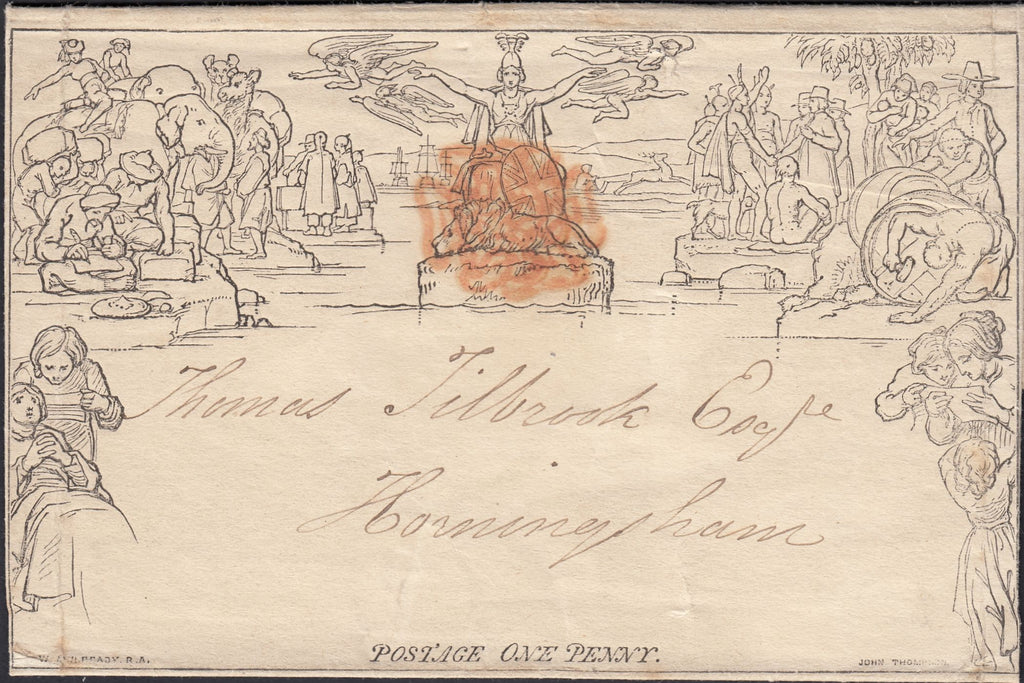 Thomas Tilbrook Esqre
Horningsham
POSTAGE ONE PENNY.
W. MULREADY. R.A.
JOHN THOMPSON